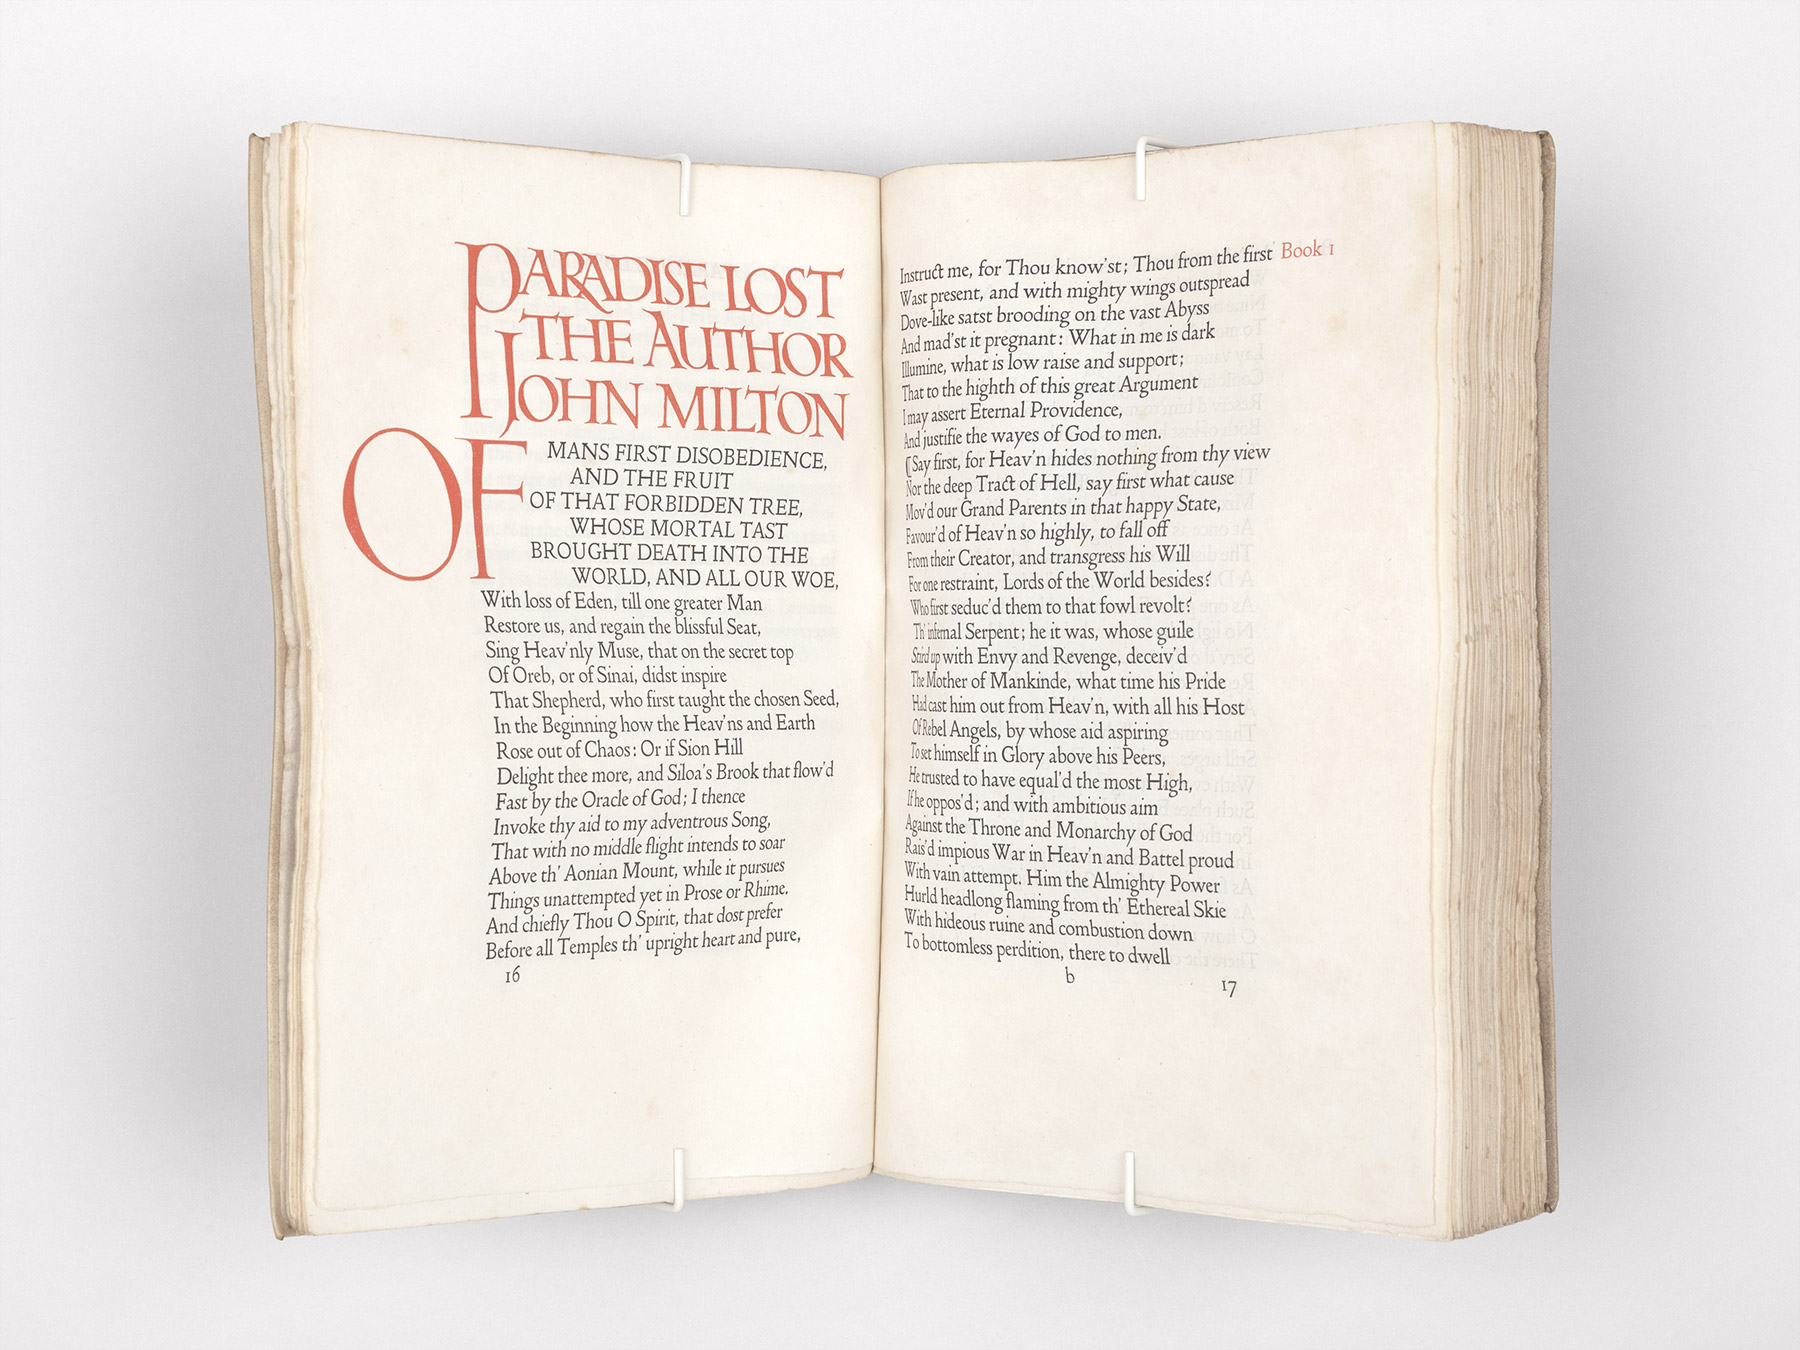 PARADISE LOST
THE AUTHOR
JOHN MILTON
OF MANS FIRST DISOBEDIENCE,
AND THE FRUIT
OF THAT FORBIDDEN TREE,
WHOSE MORTAL TAST
BROUGHT DEATH INTO THE
WORLD, AND ALL OUR WOE,
With loss of Eden, till one greater Man
Restore us, and regain the blissful Seat,
Sing Heav'nly Muse, that on the secret top
Of Oreb, or of Sinai, didst inspire
That Shepherd, who first taught the chosen Seed,
In the Beginning how the Heav'ns and Earth
Rose out of Chaos: Or if Sion Hill
Delight thee more, and Siloa's Brook that flow'd
Fast by the Oracle of God; I thence
Invoke thy aid to my adventrous Song,
That with no middle flight intends to soar
Above th' Aonian Mount, while it pursues
Things unattempted yet in Prose or Rhime.
And chiefly Thou O Spirit, that dost prefer
Before all Temples th' upright heart and pure,
16
Instruct me, for Thou know'st; Thou from the first Book 1
Wast present, and with mighty wings outspread
Dove-like satst brooding on the vast Abyss
And mad'st it pregnant: What in me is dark
Illumine, what is low raise and support;
That to the highth of this great Argument
I may assert Eternal Providence,
And justifie the wayes of God to men.
¶Say first, for Heav'n hides nothing from thy view
Nor the deep Tract of Hell, say first what cause
Mov'd our Grand Parents in that happy State,
Favour'd of Heav'n so highly, to fall off
From their Creator, and transgress his Will
For one restraint, Lords of the World besides?
Who first seduc'd them to that fowl revolt?
Th' infernal Serpent; he it was, whose guile
Stird up with Envy and Revenge, deceiv'd
The Mother of Mankinde, what time his Pride
Had cast him out from Heav'n, with all his Host
Of Rebel Angels, by whose aid aspiring
To set himself in Glory above his Peers,
He trusted to have equal'd the most High,
If he oppos'd; and with ambitious aim
Against the Throne and Monarchy of God
Rais'd impious War in Heav'n and Battel proud
With vain attempt. Him the Almighty Power
Hurld headlong flaming from th' Ethereal Skie
With hideous ruine and combustion down
To bottomless perdition, there to dwell
b
17